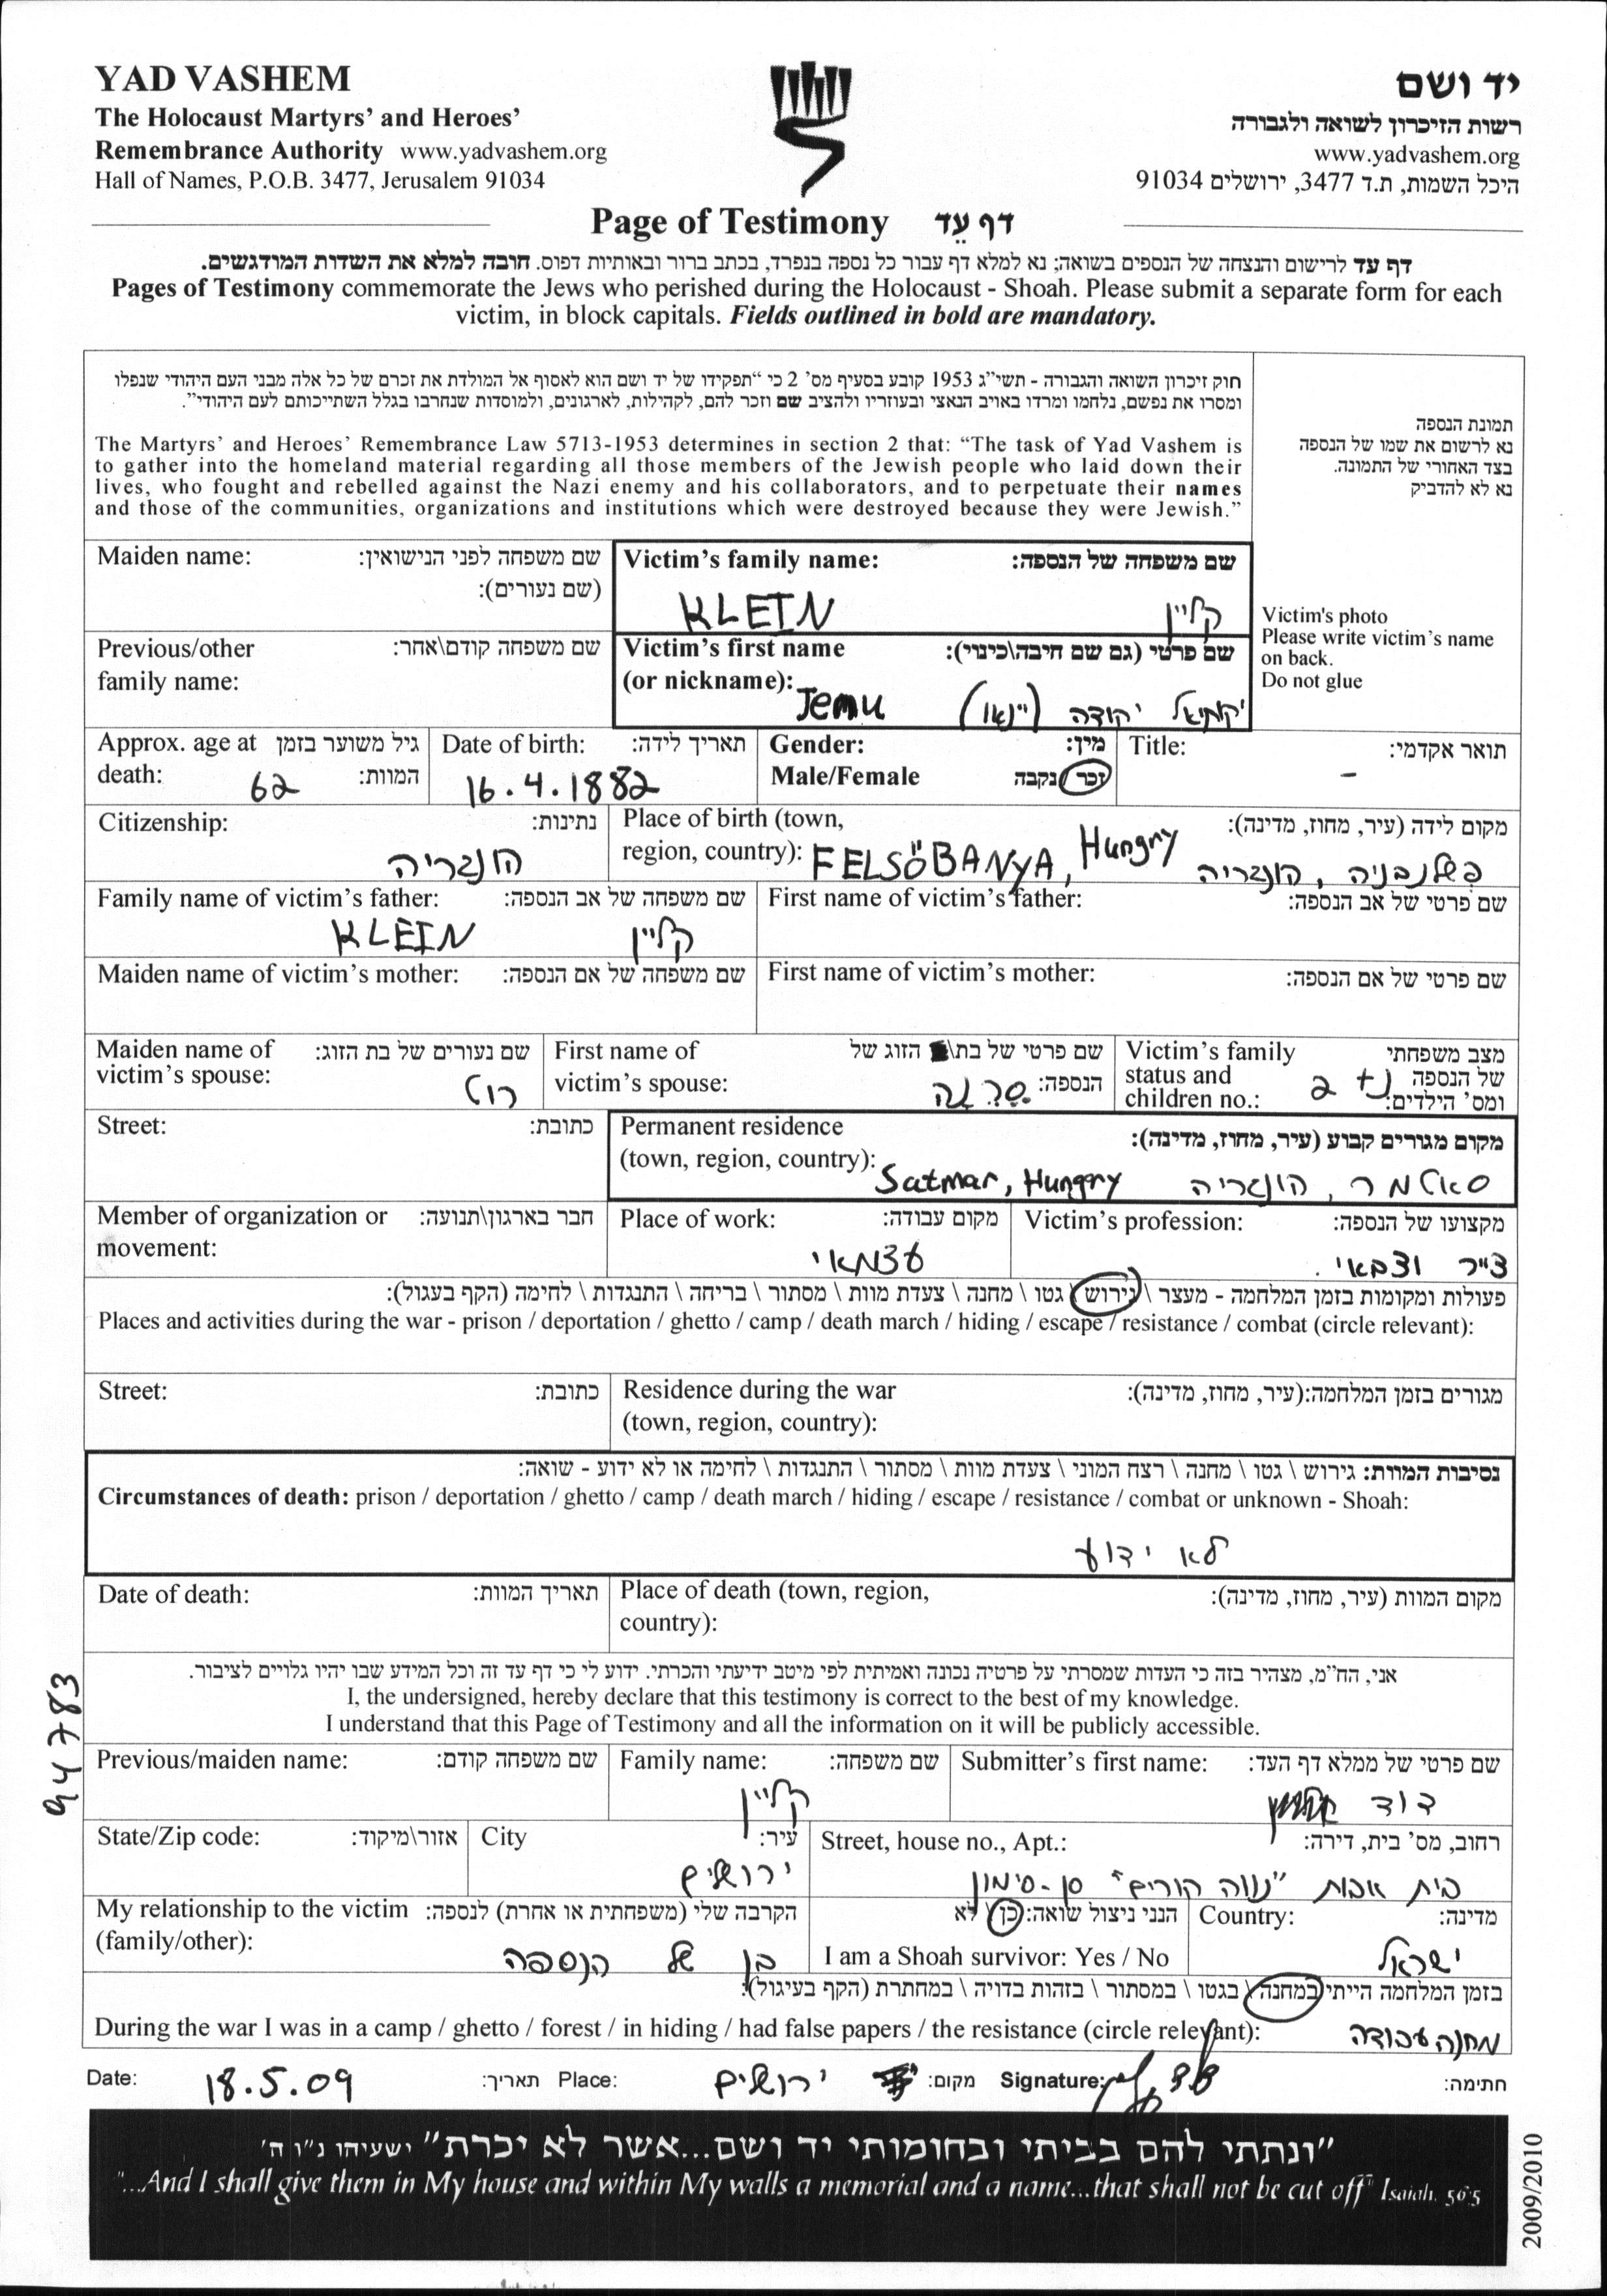 YAD VASHEM
The Holocaust Martyrs' and Heroes'
Remembrance Authority www.yadvashem.org
Hall of Names, P.O.B. 3477, Jerusalem 91034
יד ושם
רשות הזיכרון לשואה ולגבורה
www.yadvashem.org
היכל השמות, ת.ד 3477, ירושלים 91034
Page of Testimony דף עֵד
דף עד לרישום והנצחה של הנספים בשואה; נא למלא דף עבור כל נספה בנפרד, בכתב ברור ובאותיות דפוס. חובה למלא את השדות המודגשים.
Pages of Testimony commemorate the Jews who perished during the Holocaust - Shoah. Please submit a separate form for each
victim, in block capitals. Fields outlined in bold are mandatory.
חוק זיכרון השואה והגבורה - תשי"ג 1953 קובע בסעיף מס' 2 כי "תפקידו של יד ושם הוא לאסוף אל המולדת את זכרם של כל אלה מבני העם היהודי שנפלו
ומסרו את נפשם, נלחמו ומרדו באויב הנאצי ובעוזריו ולהציב שם וזכר להם, לקהילות, לארגונים, ולמוסדות שנחרבו בגלל השתייכותם לעם היהודי".
The Martyrs' and Heroes' Remembrance Law 5713-1953 determines in section 2 that: "The task of Yad Vashem is
to gather into the homeland material regarding all those members of the Jewish people who laid down their
lives, who fought and rebelled against the Nazi enemy and his collaborators, and to perpetuate their names
and those of the communities, organizations and institutions which were destroyed because they were Jewish."
תמונת הנספה
נא לרשום את שמו של הנספה
בצד האחורי של התמונה.
נא לא להדביק
Victim's photo
Please write victim's name
on back.
Do not glue
Maiden name: שם משפחה לפני הנישואין:
(שם נעורים):
Victim's family name: שם משפחה של הנספה:
KLEIN קליין
Previous/other שם משפחה קודם\אחר:
family name:
Victim's first name שם פרטי (גם שם חיבה\כינוי):
(or nickname): Jemu יקותיאל יהודה (יינאו)
Approx. age at גיל משוער בזמן
death: 62 המוות:
Date of birth: תאריך לידה:
16.4.1882
Gender: מין:
Male/Female זכר נקבה
Title: תואר אקדמי:
-
Citizenship: נתינות:
הונגריה
Place of birth (town, מקום לידה (עיר, מחוז, מדינה):
region, country): FELSÖBANYA, Hungry פלשנבניה, הונגריה
Family name of victim's father: שם משפחה של אב הנספה:
KLEIN קליין
First name of victim's father: שם פרטי של אב הנספה:
Maiden name of victim's mother: שם משפחה של אם הנספה:
First name of victim's mother: שם פרטי של אם הנספה:
Maiden name of שם נעורים של בת הזוג:
victim's spouse: רוט
First name of שם פרטי של בת\ הזוג של
victim's spouse: הנספה:
Victim's family מצב משפחתי
status and של הנספה
children no.: ומס' הילדים: נ+2
Street: כתובת:
Permanent residence מקום מגורים קבוע (עיר, מחוז, מדינה):
(town, region, country): Satmar, Hungry סאטמר, הונגריה
Member of organization or חבר בארגון\תנועה:
movement:
Place of work: מקום עבודה:
עצמאי
Victim's profession: מקצועו של הנספה:
צייר וצבאי.
פעולות ומקומות בזמן המלחמה - מעצר \ גירוש \ גטו \ מחנה \ צעדת מוות \ מסתור \ בריחה \ התנגדות \ לחימה (הקף בעגול):
Places and activities during the war - prison / deportation / ghetto / camp / death march / hiding / escape / resistance / combat (circle relevant):
Street: כתובת:
Residence during the war מגורים בזמן המלחמה:(עיר, מחוז, מדינה):
(town, region, country):
נסיבות המוות: גירוש \ גטו \ מחנה \ רצח המוני \ צעדת מוות \ מסתור \ התנגדות \ לחימה או לא ידוע - שואה:
Circumstances of death: prison / deportation / ghetto / camp / death march / hiding / escape / resistance / combat or unknown - Shoah:
לא ידוע
Date of death: תאריך המוות:
Place of death (town, region, מקום המוות (עיר, מחוז, מדינה):
country):
אני, הח"מ, מצהיר בזה כי העדות שמסרתי על פרטיה נכונה ואמיתית לפי מיטב ידיעתי והכרתי. ידוע לי כי דף עד זה וכל המידע שבו יהיו גלויים לציבור.
I, the undersigned, hereby declare that this testimony is correct to the best of my knowledge.
I understand that this Page of Testimony and all the information on it will be publicly accessible.
Previous/maiden name: שם משפחה קודם:
Family name: שם משפחה:
קליין
Submitter's first name: שם פרטי של ממלא דף העד:
דוד
State/Zip code: אזור\מיקוד:
City עיר:
ירושלים
Street, house no., Apt.: רחוב, מס' בית, דירה:
בית אבות "נווה הורים" סן-סימון
My relationship to the victim הקרבה שלי (משפחתית או אחרת) לנספה:
(family/other): בן של הנספה
הנני ניצול שואה: כן \ לא
I am a Shoah survivor: Yes / No
Country: מדינה:
ישראל
בזמן המלחמה הייתי במחנה \ בגטו \ במסתור \ בזהות בדויה \ במחתרת (הקף בעיגול):
During the war I was in a camp / ghetto / forest / in hiding / had false papers / the resistance (circle relevant): מחנה עבודה
Date: 18.5.09 תאריך: Place: ירושלים מקום: Signature: חתימה:
"ונתתי להם בביתי ובחומותי יד ושם...אשר לא יכרת" ישעיהו נ"ו ה'
"...And I shall give them in My house and within My walls a memorial and a name...that shall not be cut off" Isaiah, 56:5
94783
2009/2010